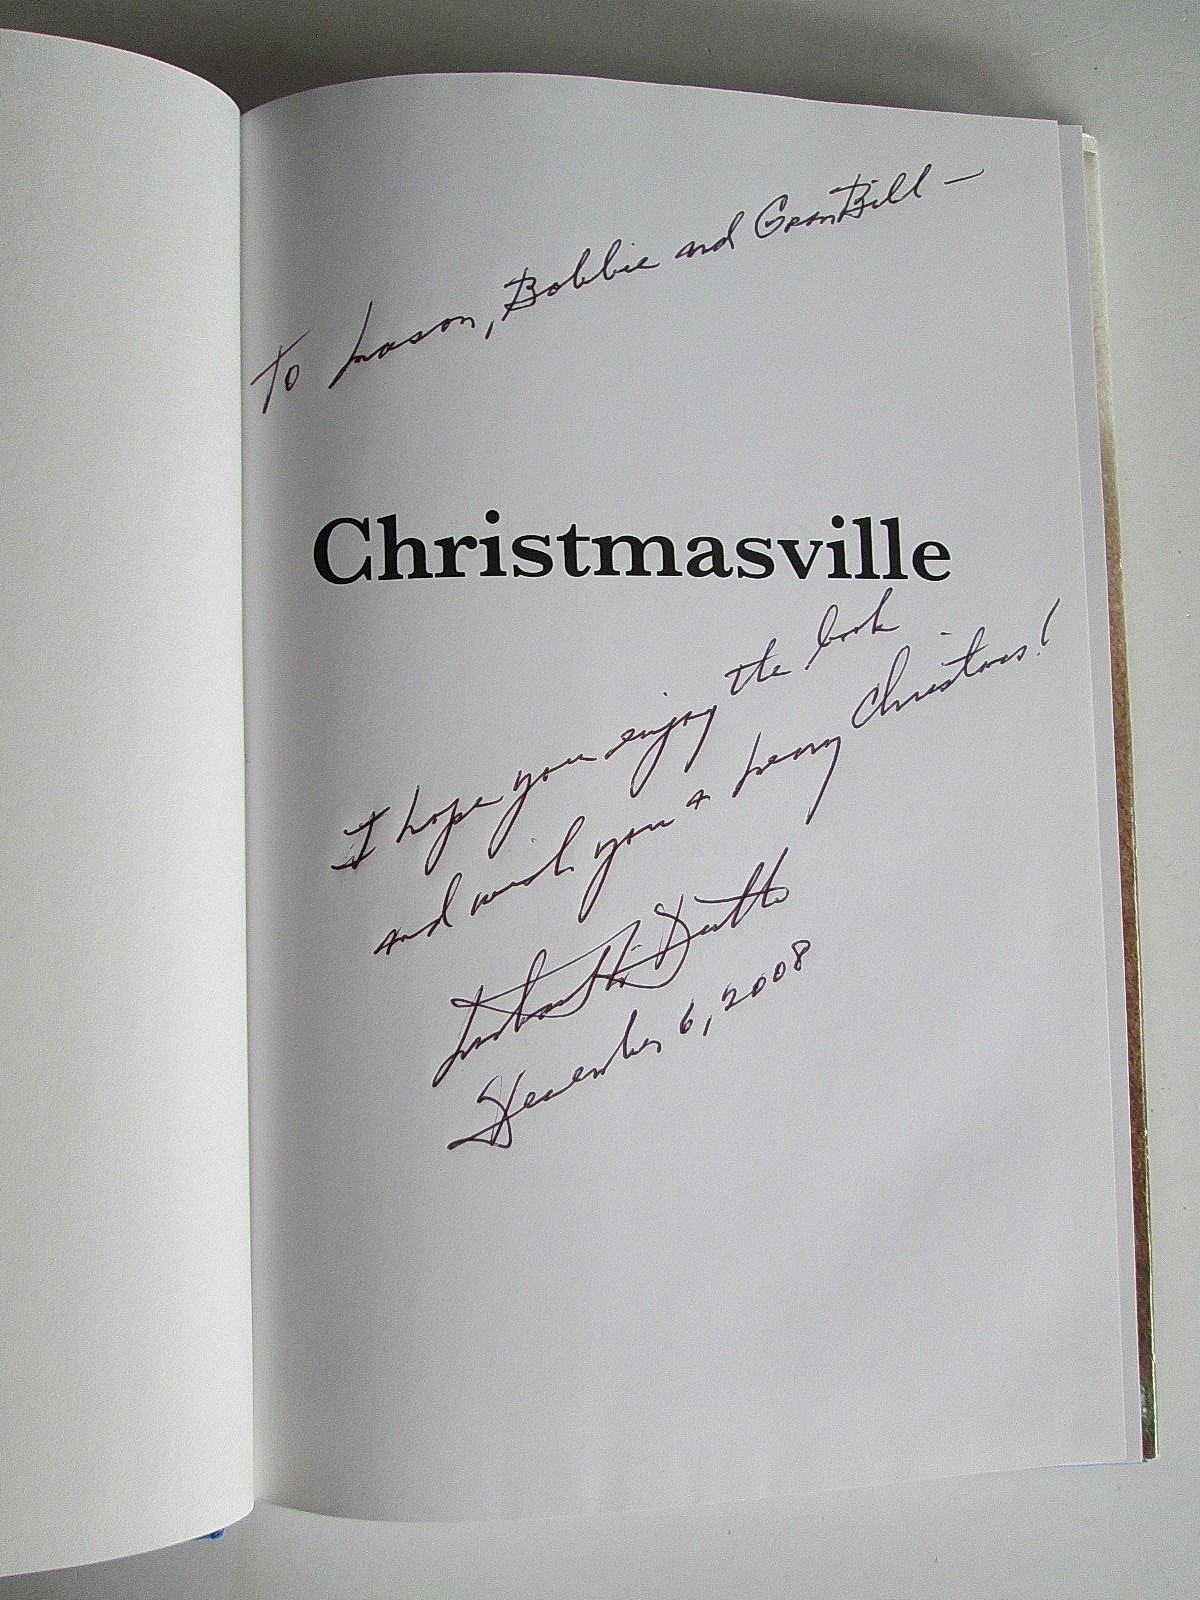 To Mason, Bobbie and GranBill —
Christmasville
I hope you enjoy the book
and wish you a Merry Christmas!
December 6, 2008